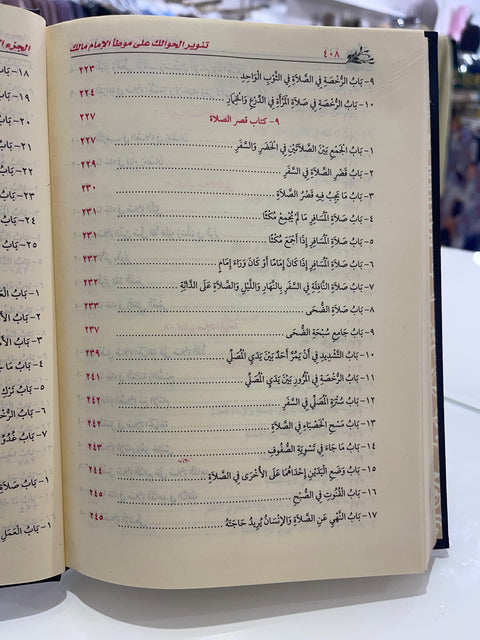 ٤٠٨ تنوير الحوالك على موطأ الإمام مالك
٩- بَابُ الرُّخْصَةِ فِي الصَّلَاةِ فِي الثَّوْبِ الْوَاحِدِ ٢٢٣
١٠- بَابُ الرُّخْصَةِ فِي صَلَاةِ الْمَرْأَةِ فِي الدِّرْعِ وَالْخِمَارِ ٢٢٤
٩- كتاب قصر الصلاة ٢٢٧
١- بَابُ الْجَمْعِ بَيْنَ الصَّلَاتَيْنِ فِي الْحَضَرِ وَالسَّفَرِ ٢٢٧
٢- بَابُ قَصْرِ الصَّلَاةِ فِي السَّفَرِ ٢٢٩
٣- بَابُ مَا يَجِبُ فِيهِ قَصْرُ الصَّلَاةِ ٢٣٠
٤- بَابُ صَلَاةِ الْمُسَافِرِ مَا لَمْ يُجْمِعْ مُكْثًا ٢٣١
٥- بَابُ صَلَاةِ الْمُسَافِرِ إِذَا أَجْمَعَ مُكْثًا ٢٣١
٦- بَابُ صَلَاةِ الْمُسَافِرِ إِذَا كَانَ إِمَامًا أَوْ كَانَ وَرَاءَ إِمَامٍ ٢٣٢
٧- بَابُ صَلَاةِ النَّافِلَةِ فِي السَّفَرِ بِالنَّهَارِ وَاللَّيْلِ وَالصَّلَاةِ عَلَى الدَّابَّةِ ٢٣٢
٨- بَابُ صَلَاةِ الضُّحَى ٢٣٣
٩- بَابُ جَامِعِ سُبْحَةِ الضُّحَى ٢٣٧
١٠- بَابُ التَّشْدِيدِ فِي أَنْ يَمُرَّ أَحَدٌ بَيْنَ يَدَيِ الْمُصَلِّي ٢٣٩
١١- بَابُ الرُّخْصَةِ فِي الْمُرُورِ بَيْنَ يَدَيِ الْمُصَلِّي ٢٤١
١٢- بَابُ سُتْرَةِ الْمُصَلِّي فِي السَّفَرِ ٢٤٢
١٣- بَابُ مَسْحِ الْحَصْبَاءِ فِي الصَّلَاةِ ٢٤٢
١٤- بَابُ مَا جَاءَ فِي تَسْوِيَةِ الصُّفُوفِ ٢٤٣
١٥- بَابُ وَضْعِ الْيَدَيْنِ إِحْدَاهُمَا عَلَى الْأُخْرَى فِي الصَّلَاةِ ٢٤٤
١٦- بَابُ الْقُنُوتِ فِي الصُّبْحِ ٢٤٥
١٧- بَابُ النَّهْيِ عَنِ الصَّلَاةِ وَالْإِنْسَانُ يُرِيدُ حَاجَتَهُ ٢٤٥
١٨- بَابُ
١٩- بَابُ
٢٠- بَابُ
٢١- بَابُ
٢٢- بَابُ
٢٣- بَابُ
٢٤- بَابُ
٢٥- بَابُ
١- بَابُ
٢- بَابُ
٣- بَابُ
٤- بَابُ
٥- بَابُ تَرْكِ
٦- بَابُ
٧- بَابُ
١- بَابُ صَلَاةِ
١- بَابُ الْعَمَلِ